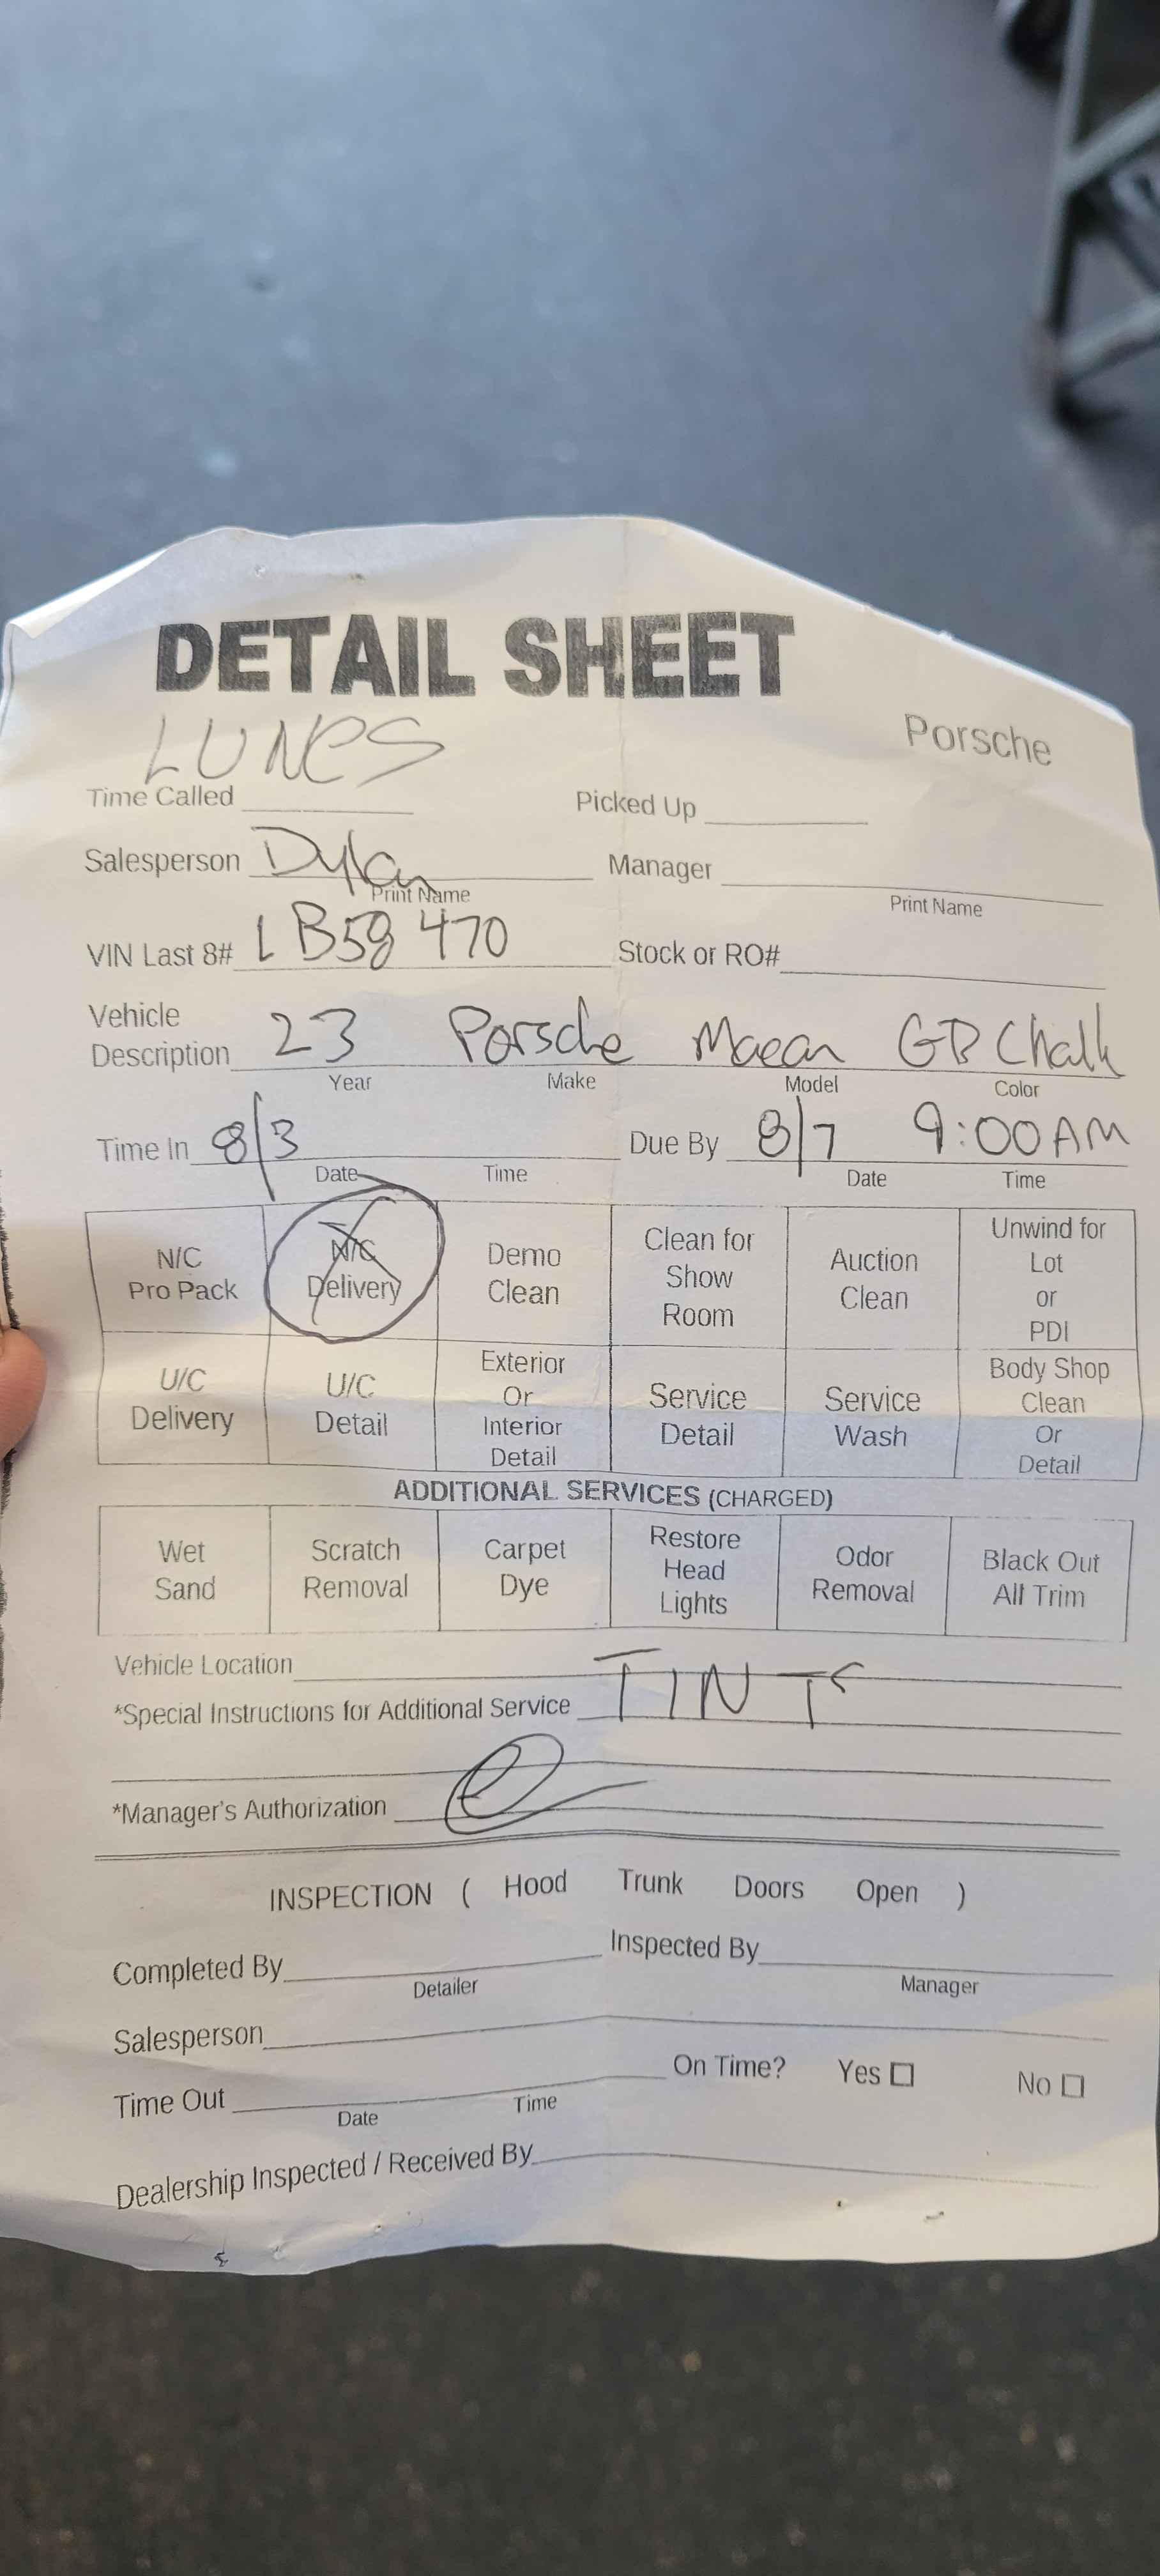 DETAIL SHEET
LUNES
Porsche
Time Called Picked Up
Salesperson Dylan Manager
Print Name Print Name
VIN Last 8# LB58470 Stock or RO#
Vehicle Description 23 Porsche Macan Chalk
Year Make Model Color
Time In 8/3 Due By 8/7 9:00AM
Date Time Date Time
N/C Pro Pack N/C Delivery Demo Clean Clean for Show Room Auction Clean Unwind for Lot or PDI
U/C Delivery U/C Detail Exterior Or Interior Detail Service Detail Service Wash Body Shop Clean Or Detail
ADDITIONAL SERVICES (CHARGED)
Wet Sand Scratch Removal Carpet Dye Restore Head Lights Odor Removal Black Out All Trim
Vehicle Location
*Special Instructions for Additional Service TINTS
*Manager's Authorization
INSPECTION ( Hood Trunk Doors Open )
Completed By Inspected By
Detailer Manager
Salesperson
On Time? Yes ☐ No ☐
Time Out
Date Time
Dealership Inspected / Received By